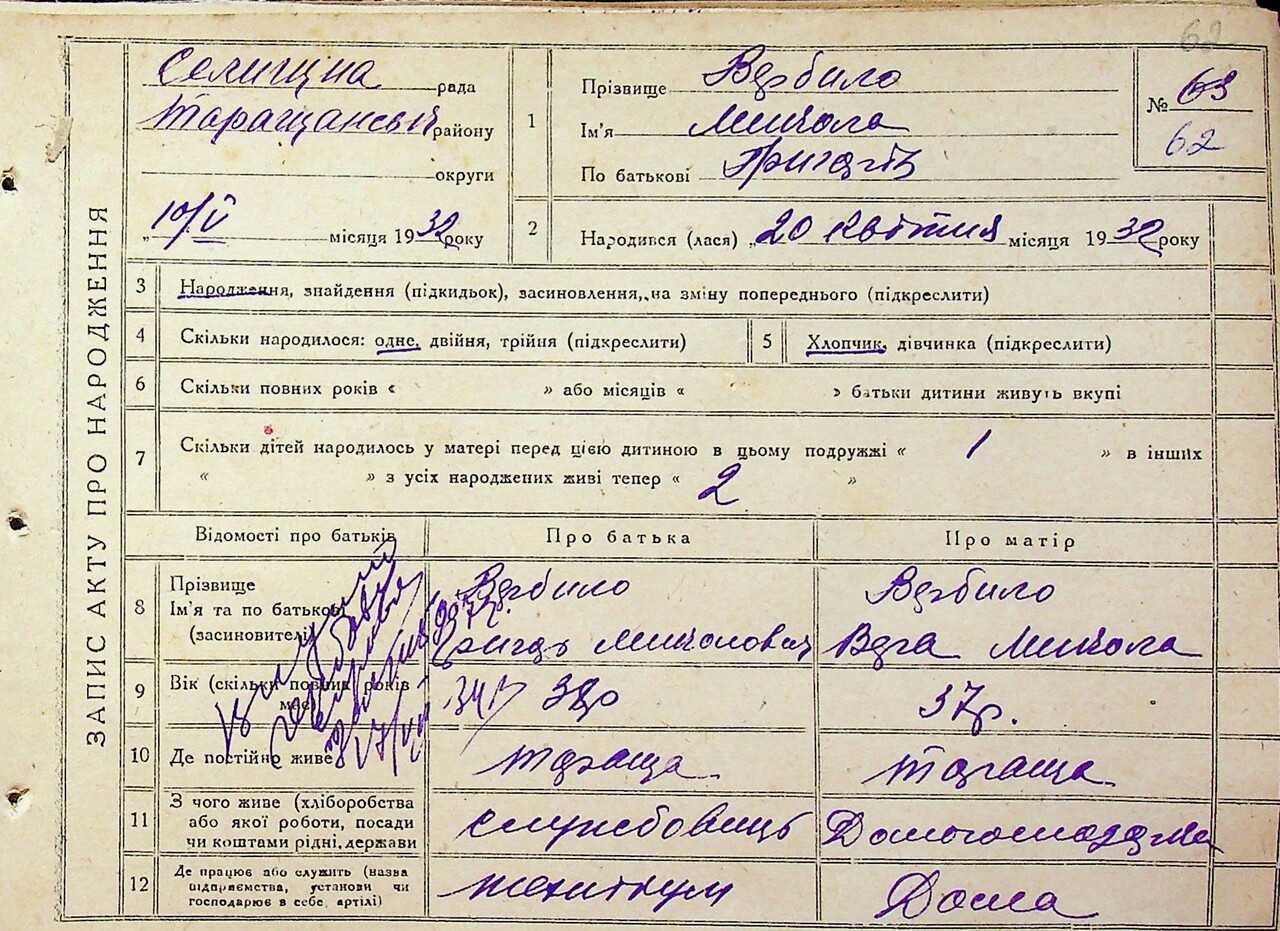 62
ЗАПИС АКТУ ПРО НАРОДЖЕННЯ
Селищна рада
Таращанський району
округи
„10/V місяця 1932 року
1
Прізвище Вербило
Ім'я Микола
По батькові Григорів
№ 63
62
2
Народився (лася) „20 квітня місяця 1932 року
3
Народження, знайдення (підкидьок), засиновлення, на зміну попереднього (підкреслити)
4
Скільки народилося: одне, двійня, трійня (підкреслити)
5
Хлопчик, дівчинка (підкреслити)
6
Скільки повних років « » або місяців « » батьки дитини живуть вкупі
7
Скільки дітей народилось у матері перед цією дитиною в цьому подружжі « 1 » в інших
« » з усіх народжених живі тепер « 2 »
Відомості про батьків
Про батька
Про матір
8
Прізвище
Ім'я та по батькові
(засновителі)
Вербило
Григорь Миколович
Вербило
Вера Микола
9
Вік (скільки повних років
має)
38р
37р.
10
Де постійно живе
Тараща
Тараща
11
З чого живе (хліборобства
або якої роботи, посади
чи коштами рідні, держави
службовець
Домогосподарка
12
Де працює або служить (назва
підприємства, установи чи
господарює в себе, артілі)
технікум
Дома